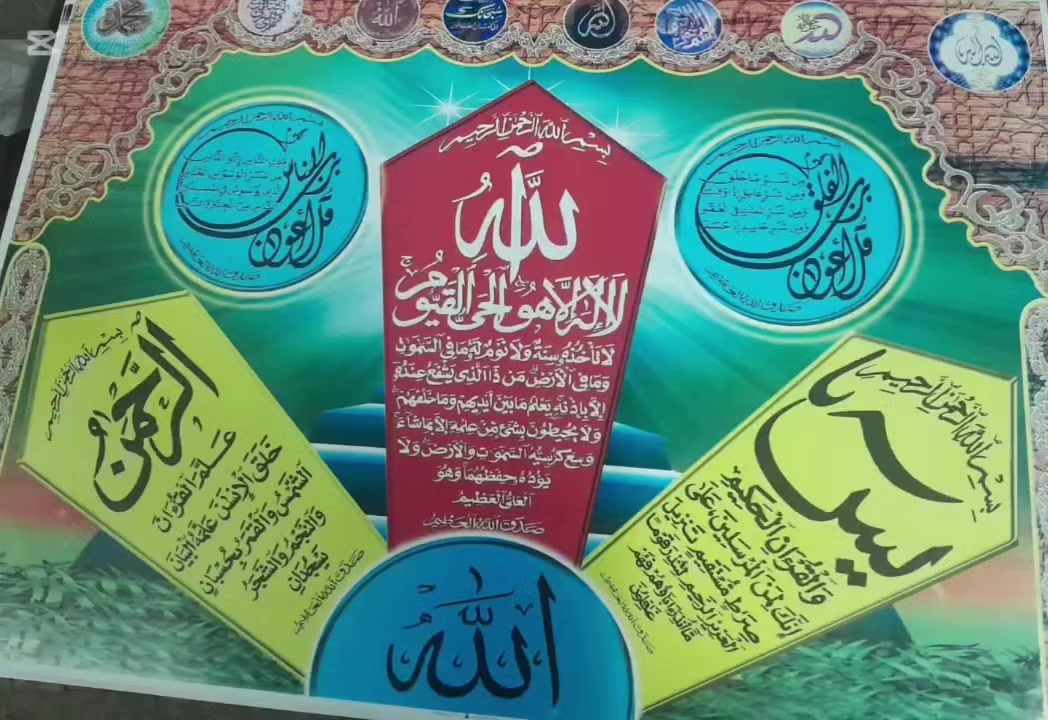 محمد
الله
سبحانك
الله أكبر
بسم الله الرحمن الرحيم
قل أعوذ برب الناس
صدق الله العظيم
بسم الله الرحمن الرحيم
الله
لا اله الا هو الحي القيوم
لا تأخذه سنة ولا نوم له ما في السموت
وما في الأرض من ذا الذي يشفع عنده
إلا بإذنه يعلم ما بين أيديهم وما خلفهم
ولا يحيطون بشيء من علمه إلا بما شاء
وسع كرسيه السموت والأرض ولا
يؤده حفظهما وهو
العلي العظيم
صدق الله العظيم
بسم الله الرحمن الرحيم
قل أعوذ برب الفلق
من شر ما خلق
صدق الله العظيم
بسم الله الرحمن الرحيم
الرحمن
علم القرآن
خلق الإنسن علمه البيان
الشمس والقمر بحسبان
والنجم والشجر
يسجدان
صدق الله العظيم
بسم الله الرحمن الرحيم
يس
والقرآن الحكيم
إنك لمن المرسلين على
صرط مستقيم تنزيل
العزيز الرحيم لتنذر قوما
ما أنذر آباؤهم فهم
غافلون
صدق الله العظيم
الله